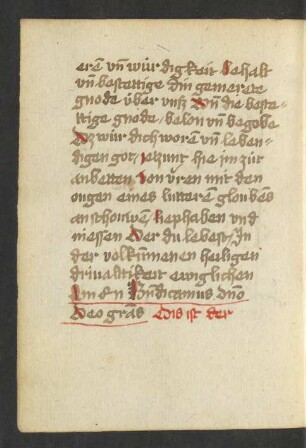 eren vn̄ würdigkeit Behalt
vn̄ bestettige din gemerete
gnode über vnsz Vn̄ die beste-
ttige gnode / belon vn̄ begobe
Dz wür dich woren vn̄ leben-
digen got / ietzunt hie jm zür
anbetten Von vren mit den
ougen eines lutteren gloubens
an schouwen liephaben vnd
niessen Der du lebest / Jn
der volkūmenen heiligen
driualttikeit ewiglichen
Amen Bn̄dicamus dn̄o
Deo gr̄as Dis ist der